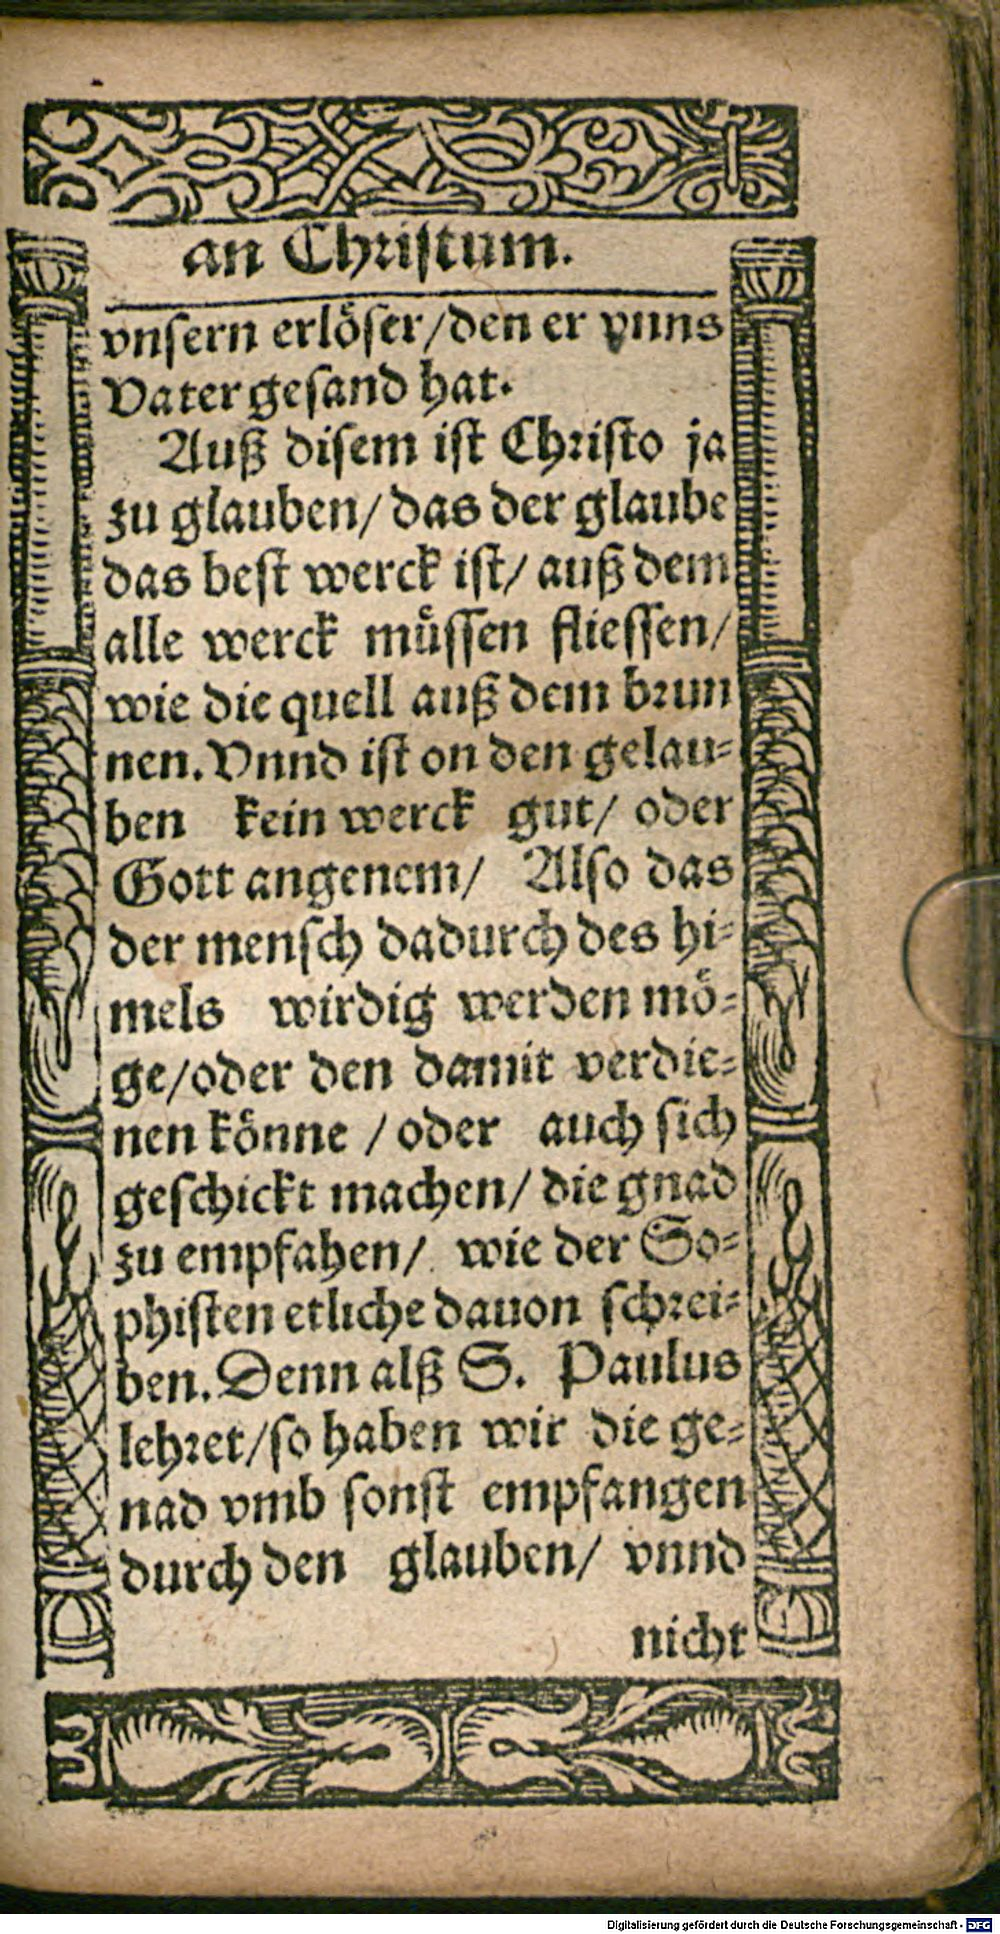 an Christum.
vnsern erlöser/den er vnns
Vater gesand hat.
Auß disem ist Christo ja
zu glauben/das der glaube
das best werck ist/ auß dem
alle werck müssen fliessen/
wie die quell auß dem brun
nen. Vnnd ist on den gelau-
ben kein werck gut/ oder
Gott angenem/ Also das
der mensch dadurch des hi-
mels wirdig werden mö-
ge/oder den damit verdie-
nen könne /oder auch sich
geschickt machen/ die gnad
zu empfahen/ wie der So-
phisten etliche dauon schrei-
ben. Denn alß S. Paulus
lehret/so haben wir die ge-
nad vmb sonst empfangen
durch den glauben/ vnnd
nicht
Digitalisierung gefördert durch die Deutsche Forschungsgemeinschaft - DFG